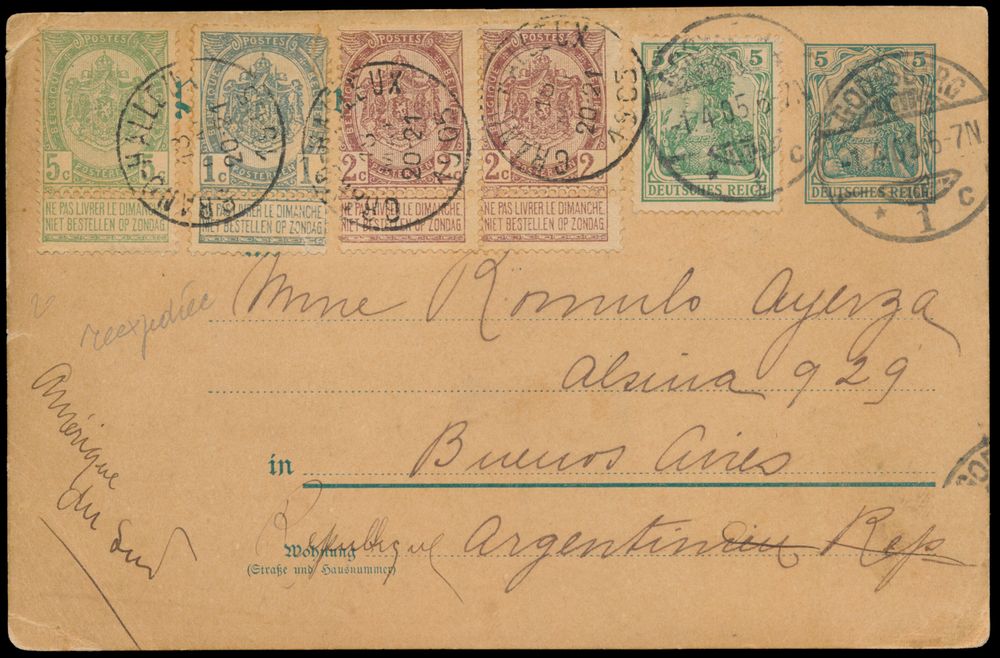 POSTES POSTES POSTES POSTES 5 5 5 5
5c 1c 1c 2c 2c 2c 2c
DEUTSCHES REICH DEUTSCHES REICH
NE PAS LIVRER LE DIMANCHE NE PAS LIVRER LE DIMANCHE NE PAS LIVRER LE DIMANCHE NE PAS LIVRER LE DIMANCHE
NIET BESTELLEN OP ZONDAG NIET BESTELLEN OP ZONDAG NIET BESTELLEN OP ZONDAG NIET BESTELLEN OP ZONDAG
20-21
1905
20-21
1905
-1.4.05
* 1 c
réexpédiée
Mme Romulo Ayerza
Alsina 929
in Buenos Aires
République Argentinien Rep
Wohnung
(Straße und Hausnummer)
Amérique
du Sud